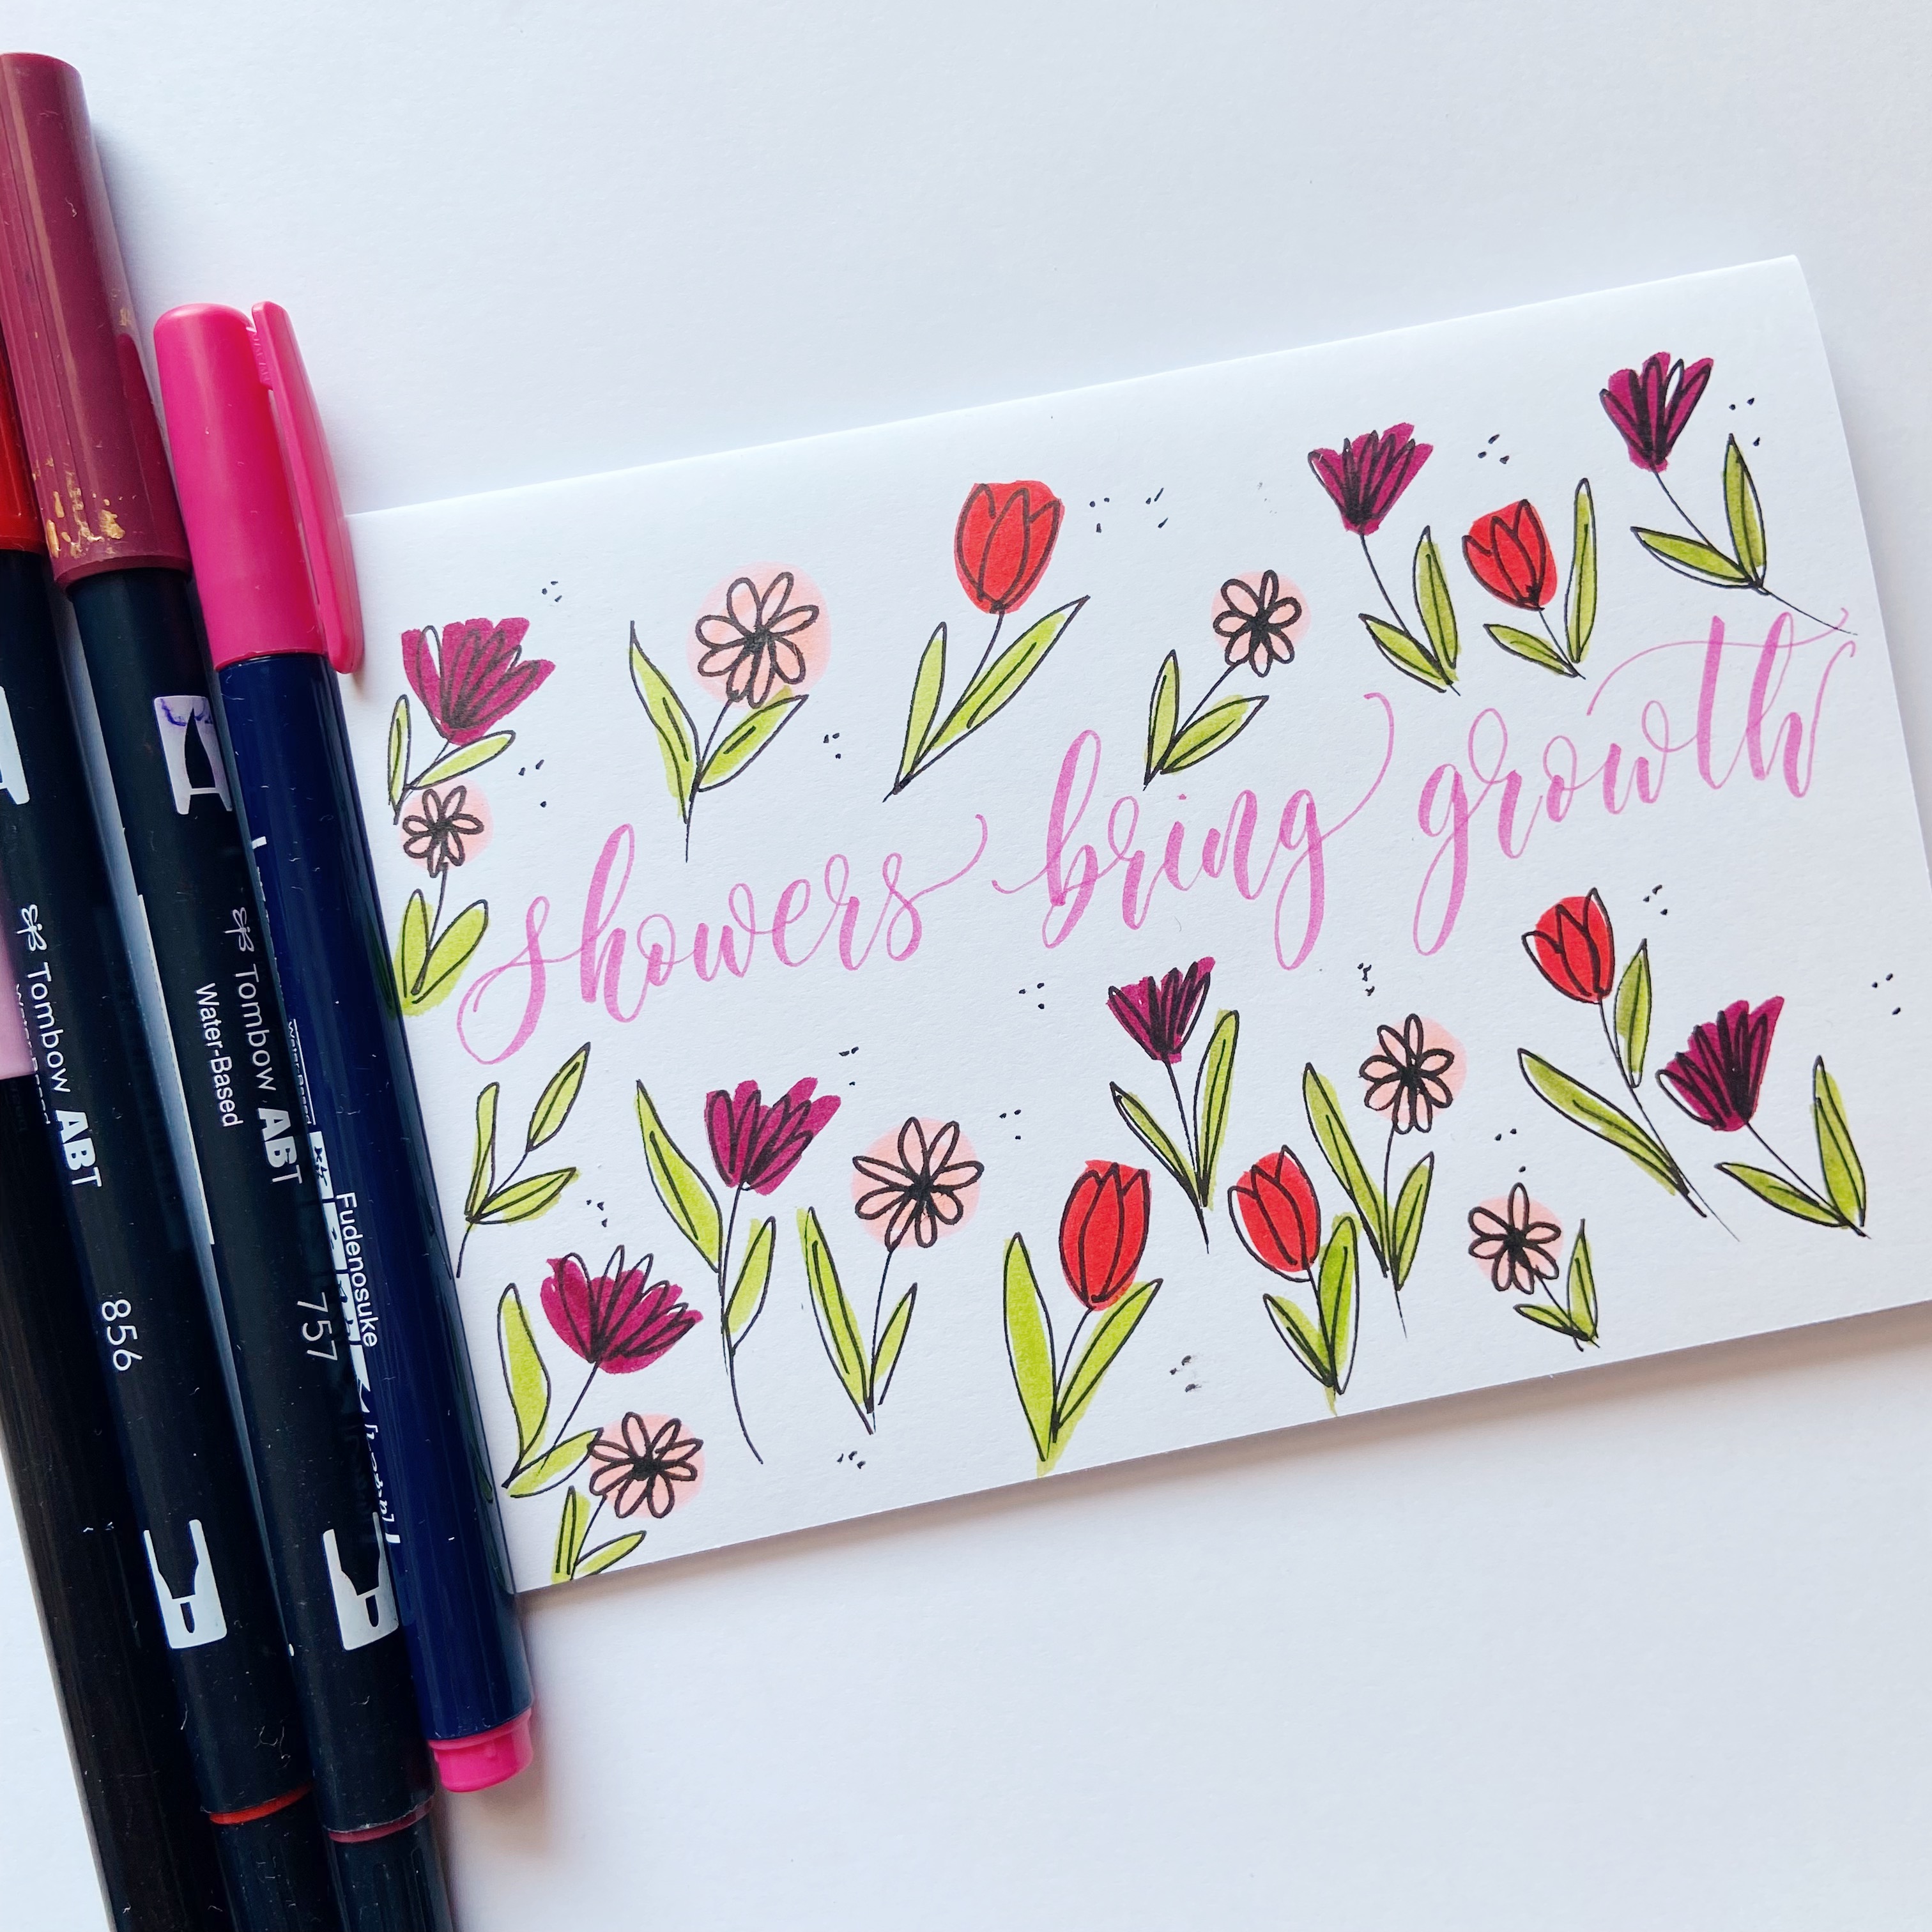 showers bring growth
Tombow ABT
856
Tombow ABT
Water-Based
757
Fudenosuke